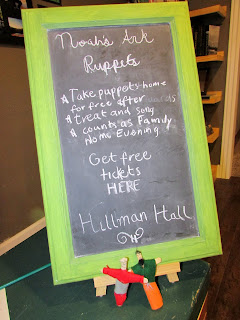 Noah's Ark
Puppets
* Take puppets home
for free after
* treat and song
* counts as Family
Home Evening!
Get free
tickets
HERE
Hillman Hall